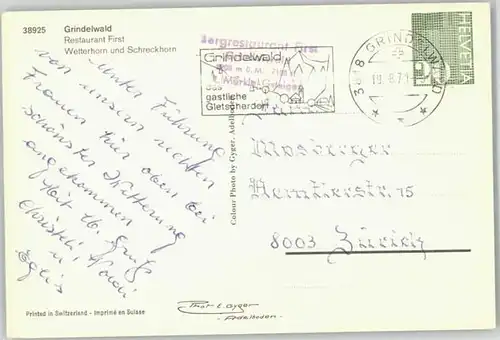 38925 Grindelwald
Restaurant First
Wetterhorn und Schreckhorn
Bergrestaurant First
Grindelwald
das
gastliche
Gletscherdorf
3818 GRINDELWALD
19.8.71
HELVETIA
Unter Führung
von unsern
Frauen hier oben bei
schönster Witterung
angekommen
Mit lb. Gruss
Christeli u.
Eglis
Mosberger
15
8003 Zürich
Colour Photo by Gyger, Adelboden
Phot E. Gyger
- Adelboden -
Printed in Switzerland - Imprimé en Suisse